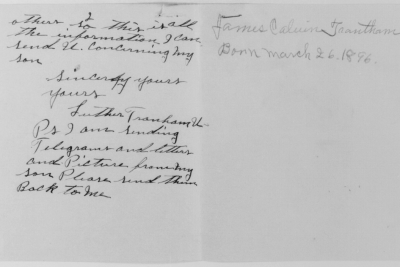 others, so this is all
the information I can
send U. concerning my
son
Sincerely yours
yours
Luther Tranham
Ps I am sending
Telegrams and letters
and Picture from my
son Please send them
Back to Me
James Calvin Trantham
Born march 26. 1896.